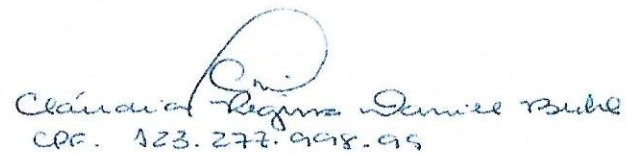 Cláudia Regina Daniel Buhl
CPF. 123.277.998-95